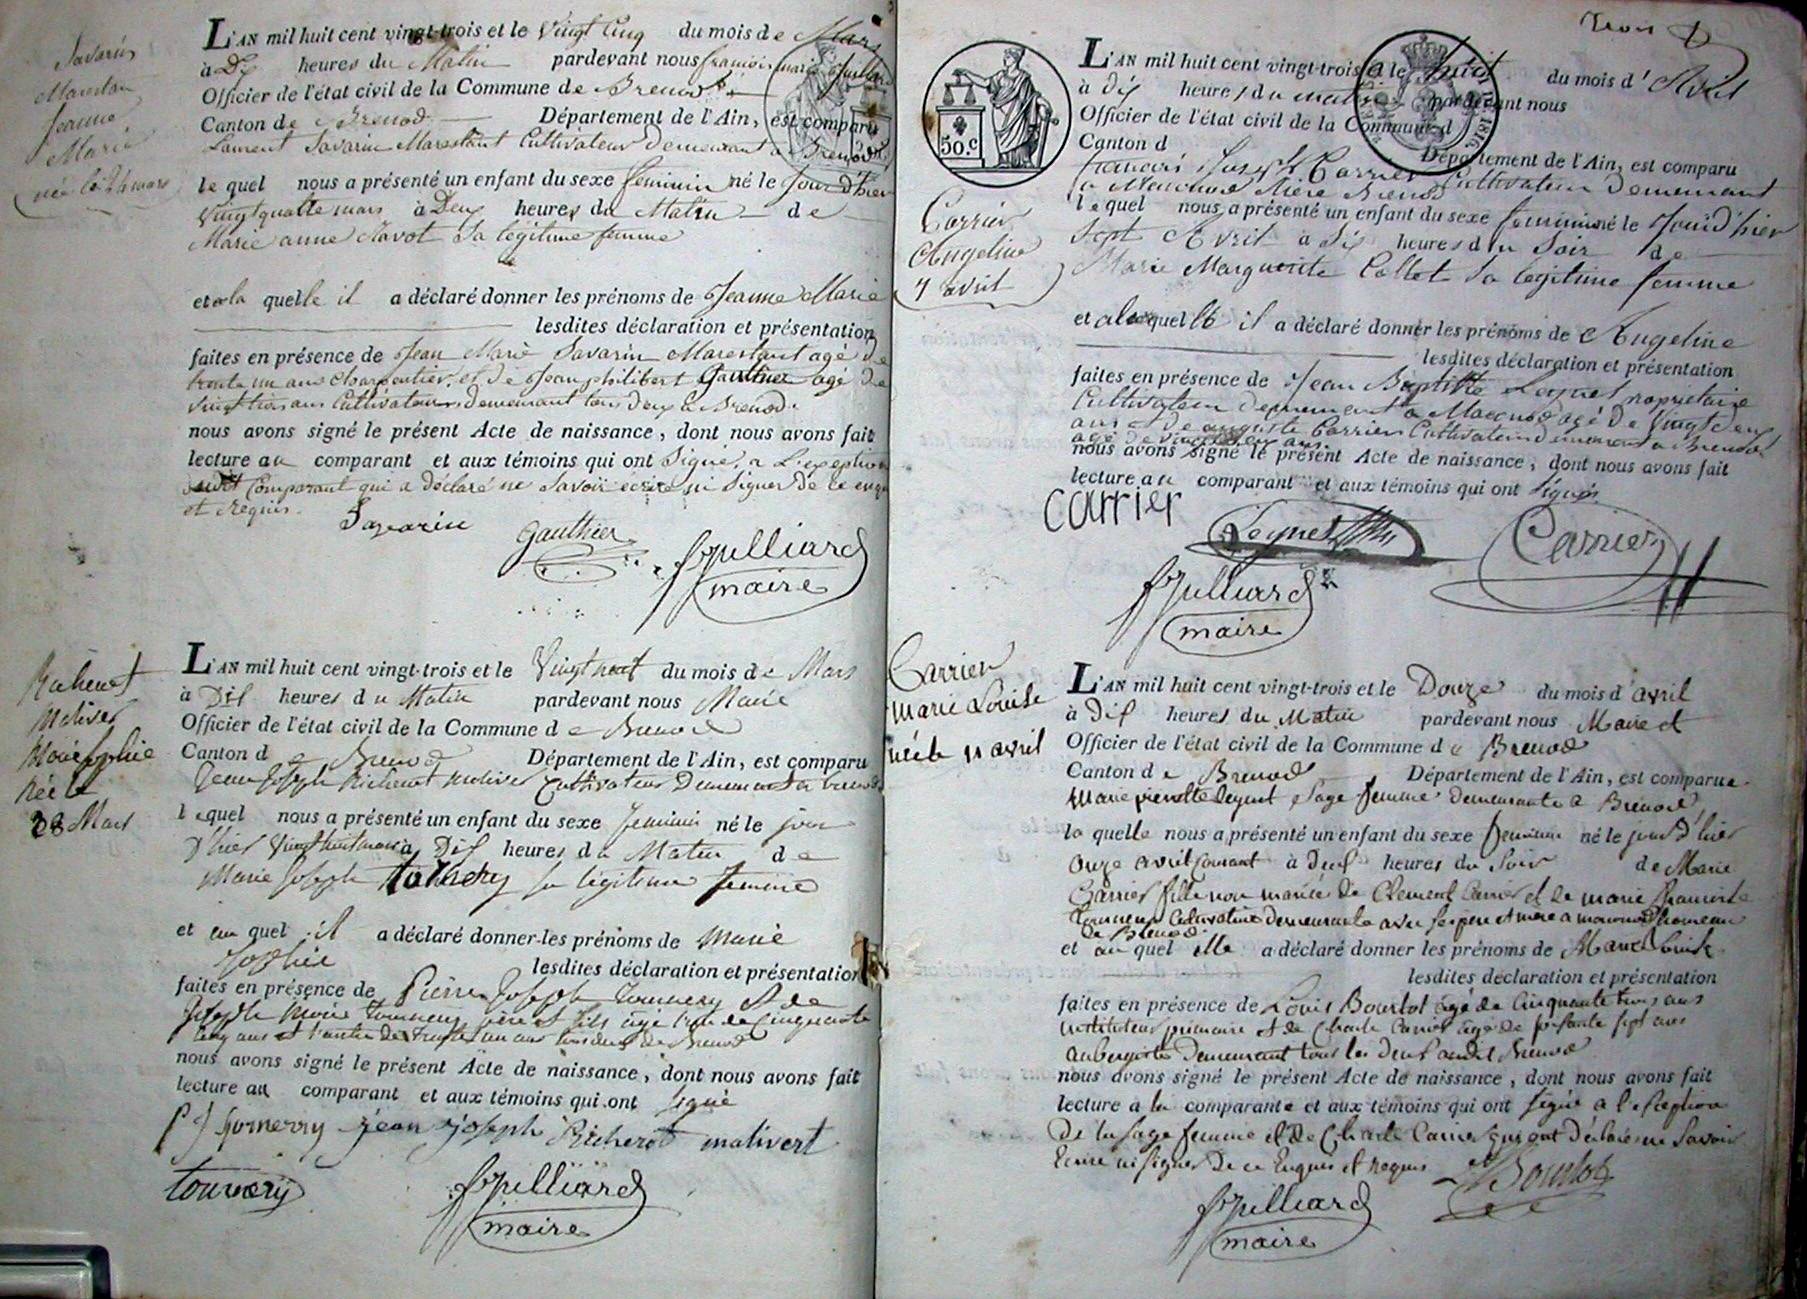 Savarin
Marestan
Jeanne
Marie
née le 24 mars
L'AN mil huit cent vingt-trois et le Vingt Cinq du mois de Mars
à Dix heures du Matin pardevant nous françois marie Juilliard
Officier de l'état civil de la Commune de Brenod
Canton de Brenod Département de l'Ain, est comparu
Laurent Savarin Marestant Cultivateur demeurant a Brenod
le quel nous a présenté un enfant du sexe feminin né le jour d'hier
Vingt quatre mars à Deux heures du Matin de
Marie anne Navot Sa légitime femme
et a la quelle il a déclaré donner les prénoms de Jeanne Marie
lesdites déclaration et présentation
faites en présence de Jean Marie Savarin Marestant agé de
trente un ans charpentier, et de Jean philibert Gauthier agé de
vingt trois ans Cultivateurs demeurant tous deux a Brenod.
nous avons signé le présent Acte de naissance, dont nous avons fait
lecture au comparant et aux témoins qui ont Signé, a L'exception
dudit Comparant qui a déclaré ne Savoir ecrire ni Signer de ce enquis
et requis.
Savarin
Gauthier
Juilliard
maire
Richerot
Malivert
Marie Sophie
née le
28 Mars
L'AN mil huit cent vingt-trois et le Vingt neuf du mois de Mars
à Dix heures du Matin pardevant nous Maire
Officier de l'état civil de la Commune de Brenod
Canton de Brenod Département de l'Ain, est comparu
Jean Joseph Richerot Malivert Cultivateur Demeurant a Brenod
lequel nous a présenté un enfant du sexe feminin né le jour
D'hier Vingt huit mars à Dix heures du Matin de
Marie Joseph sa légitime femme
et au quel il a déclaré donner les prénoms de Marie
Sophie lesdites déclaration et présentation
faites en présence de Pierre Joseph Tonnery et de
Joseph Marie Tonnery père et fils agé l'un de Cinquante
cinq ans et l'autre de Trente un ans tous deux de Brenod
nous avons signé le présent Acte de naissance, dont nous avons fait
lecture au comparant et aux témoins qui ont signé
P J tonnerry jean joseph Richerot malivert
tonnery
Juilliard
maire
Trois
50.c
1816.
Carrier
Angeline
7 avril
L'AN mil huit cent vingt-trois et le huit du mois d'Avril
à dix heures du matin pardevant nous
Officier de l'état civil de la Commune d
Canton d Département de l'Ain, est comparu
francois Joseph Carrier Cultivateur demeurant
a Brenod
lequel nous a présenté un enfant du sexe feminin né le Jour d'hier
Sept Avril à Six heures du Soir de
Marie Marguerite Collet Sa légitime femme
et a la quelle il a déclaré donner les prénoms de Angeline
lesdites déclaration et présentation
faites en présence de Jean Baptiste Leynet propriétaire
Cultivateur demeurant a agé de Vingt deux
ans et de auguste Carrier Cultivateur demeurant a Brenod
agé de vingt ans.
nous avons signé le présent Acte de naissance, dont nous avons fait
lecture au comparant et aux témoins qui ont Signés
carrier
Leynet
Carrier
Juilliard
maire
Carrier
marie Louise
née le 11 avril
L'AN mil huit cent vingt-trois et le Douze du mois d'avril
à Dix heures du Matin pardevant nous Maire et
Officier de l'état civil de la Commune de Brenod
Canton de Brenod Département de l'Ain, est comparue
Marie pierrette Sage femme demeurante a Brenod
la quelle nous a présenté un enfant du sexe feminin né le jour d'hier
onze avril Courant à Deux heures du Soir de Marie
Carrier fille non mariée de Clement Carrier et de marie francoise
Tonnery Cultivatrice demeurante avec ses père et mère a hameau
de Brenod
et au quel elle a déclaré donner les prénoms de Marie Louise
lesdites déclaration et présentation
faites en présence de Louis Bourlot agé de Cinquante trois ans
instituteur primaire et de Charle Carrier agé de soixante sept ans
aubergiste Demeurant tous les Deux audit Brenod
nous avons signé le présent Acte de naissance, dont nous avons fait
lecture à la comparante et aux témoins qui ont signé a l'exception
de la sage femme et de Charle Carrier qui ont déclaré ne Savoir
Ecrire ni signer De ce Enquis et requis
Bourlot
Juilliard
maire